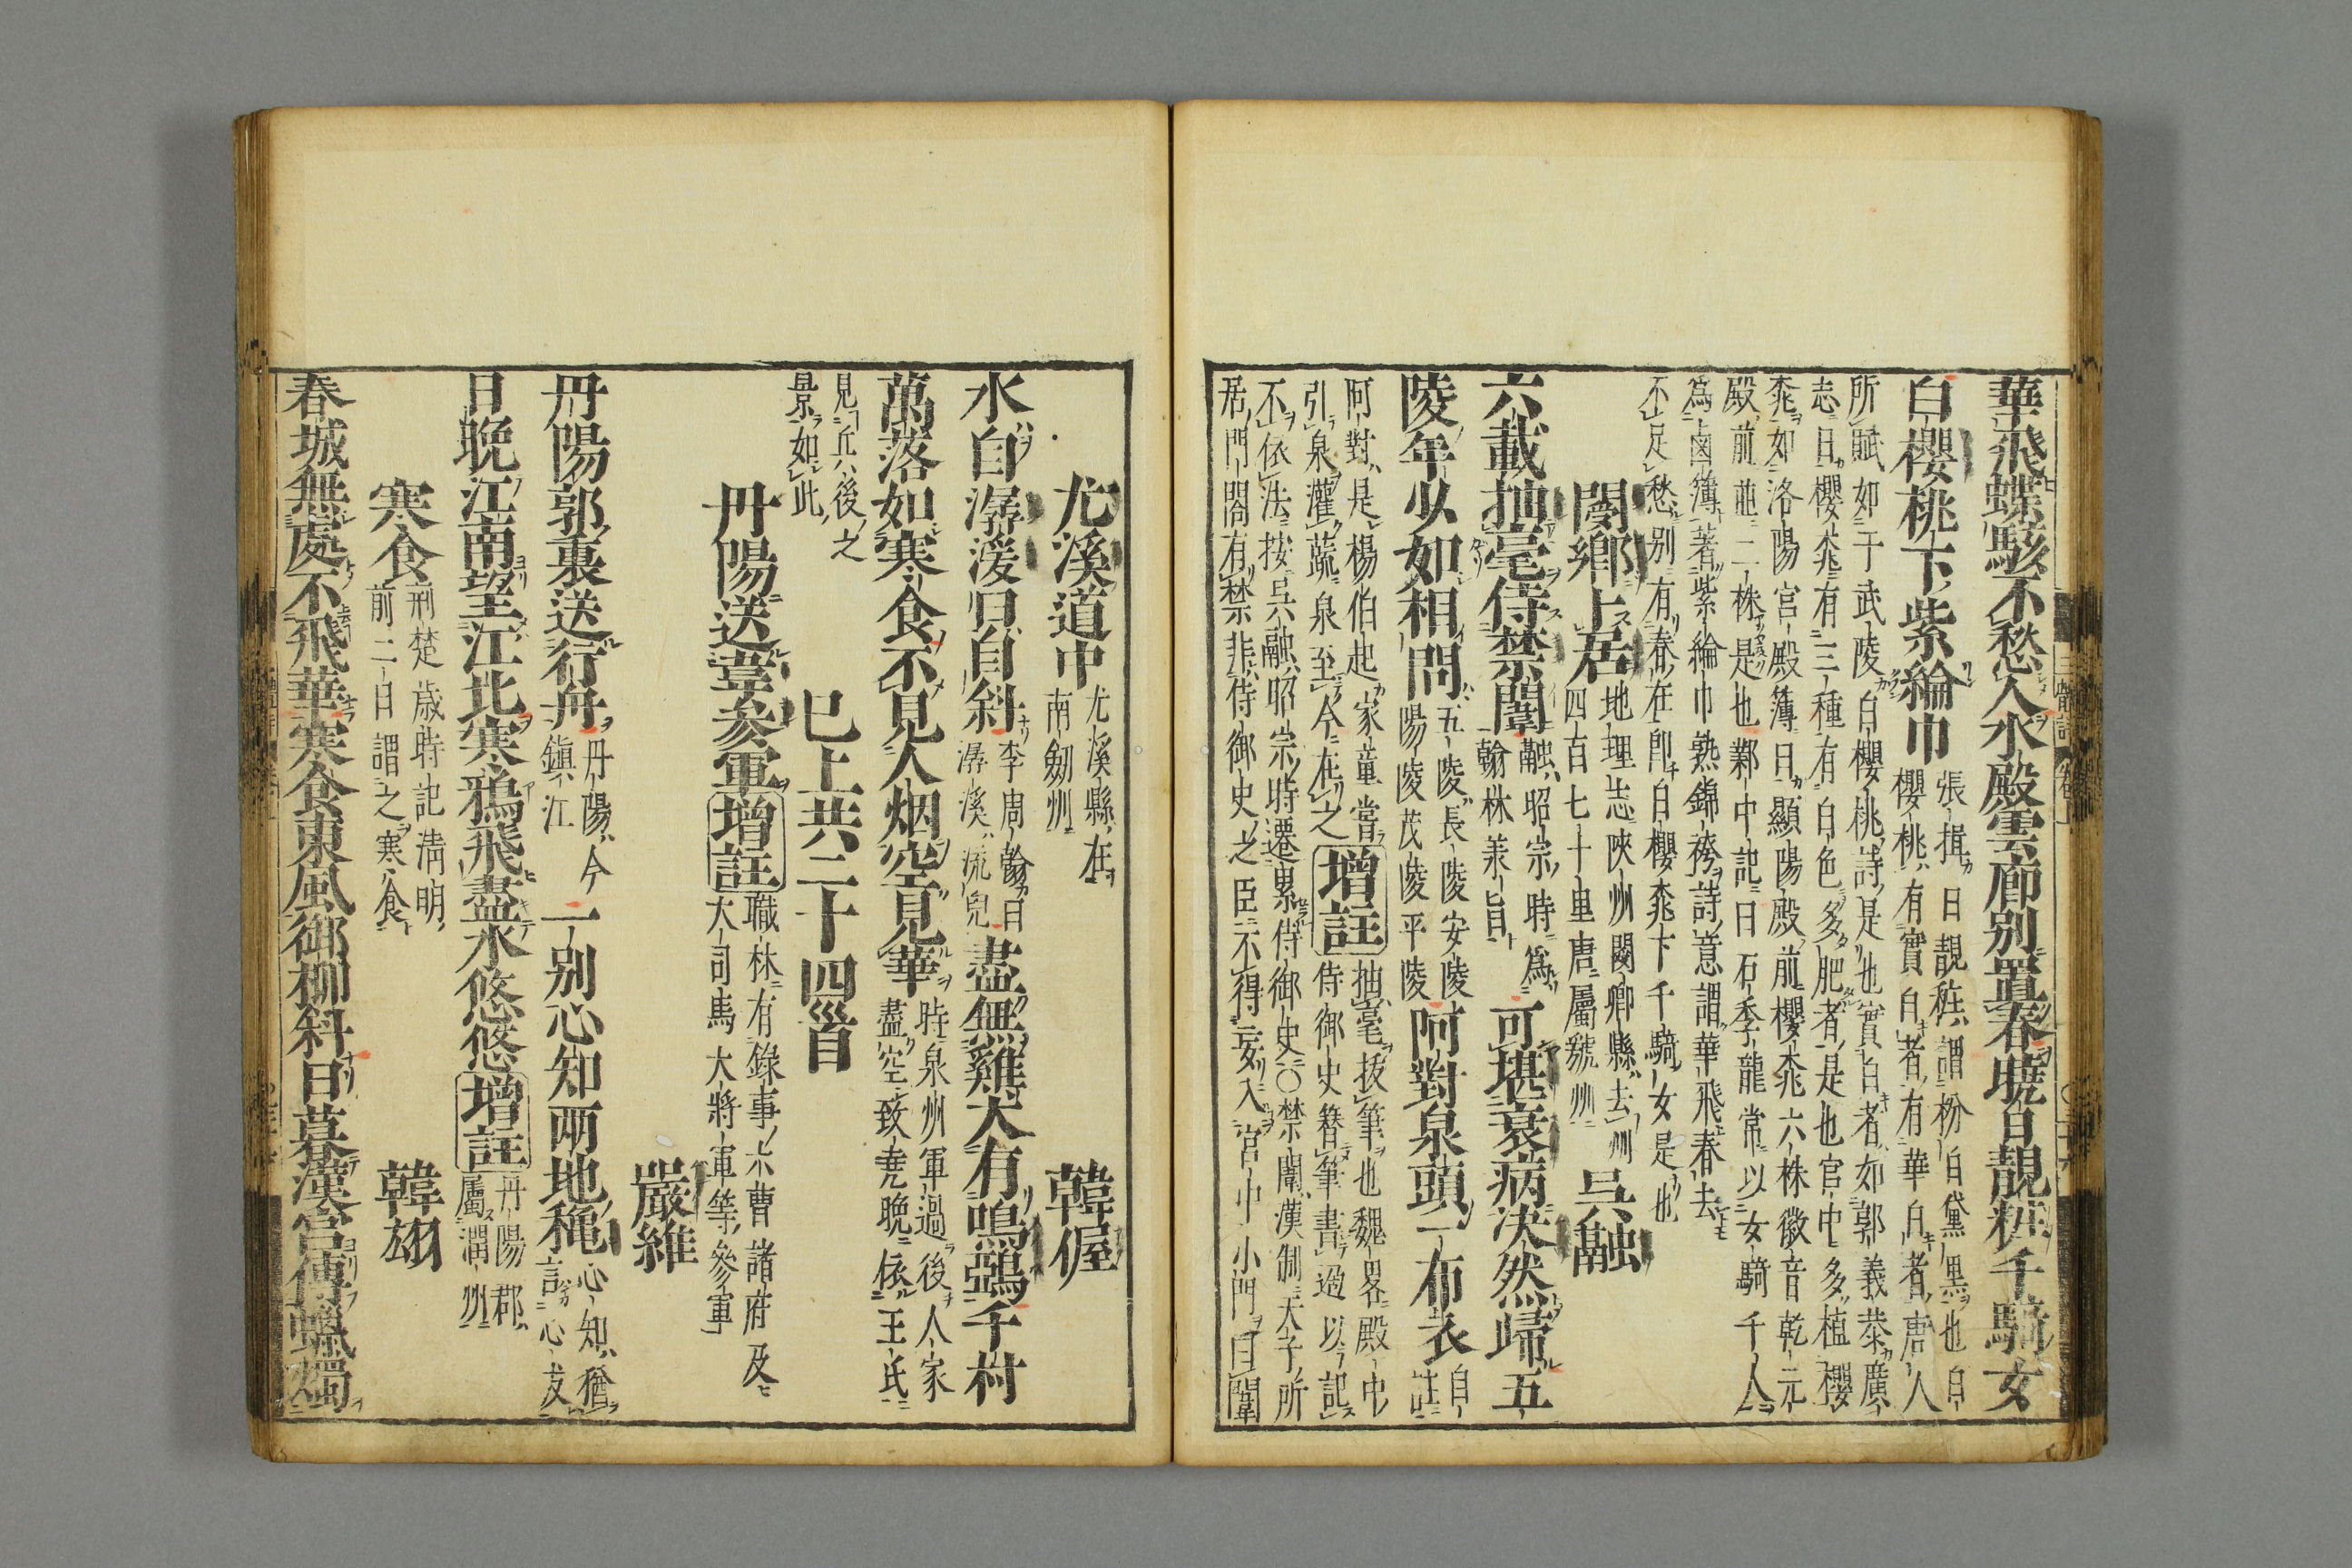 華飛蝶駭不愁人水殿雲廊別置春曉日靚粧千騎女
白櫻桃下紫綸巾
張揖曰靚粧謂粉白黛黑也白
櫻桃有實白者有華白者唐人
所賦如于武陵白櫻桃詩是也實白者如郭義恭廣
志曰櫻桃有三種有白色多肥者是也官中多植櫻
桃如洛陽宮殿簿曰顯陽殿前櫻桃六株徽音乾元
殿前並二株是也鄴中記曰石季龍常以女騎千人
為鹵簿著紫綸巾熟錦袴詩意謂華飛春去
不足愁別有春在即白櫻桃下千騎女是也
閿鄉卜居
地理志陝州閿鄉縣去州
四百七十里唐屬虢州
吳融
六載抽毫侍禁闈
融昭宗時為
翰林兼旨
可堪衰病決然歸五
陵年少如相問
五陵長陵安陵
陽陵茂陵平陵
阿對泉頭一布衣
自
註
阿對是楊伯起家童嘗
引泉灌蔬泉至今在之
增註
抽毫拔筆也魏畧殿中
侍御史簪筆書過以記
不依法按吳融昭宗時遷累侍御史○禁闈漢制天子所
居門閤有禁非侍御史之臣不得妄入宮中小門曰闈
尤溪道中
尤溪縣在
南劒州
韓偓
水自潺湲日自斜
李周翰曰
潺溪流皃
盡無雞犬有鳴鵶千村
萬落如寒食不見人烟空見華
時泉州軍過後人家
盡空致堯晚依王氏
見兵後之
景如此
已上共二十四首
丹陽送韋參軍
增註
職林有錄事六曹諸府及
大司馬大將軍等參軍
嚴維
丹陽郭裏送行舟
丹陽今
鎮江
一別心知兩地秋
心知猶
言心友
日晚江南望江北寒鴉飛盡水悠悠
增註
丹陽郡
屬潤州
寒食
荊楚歲時記清明
前二日謂之寒食
韓翃
春城無處不飛華寒食東風御柳斜日暮漢宮傳蠟燭